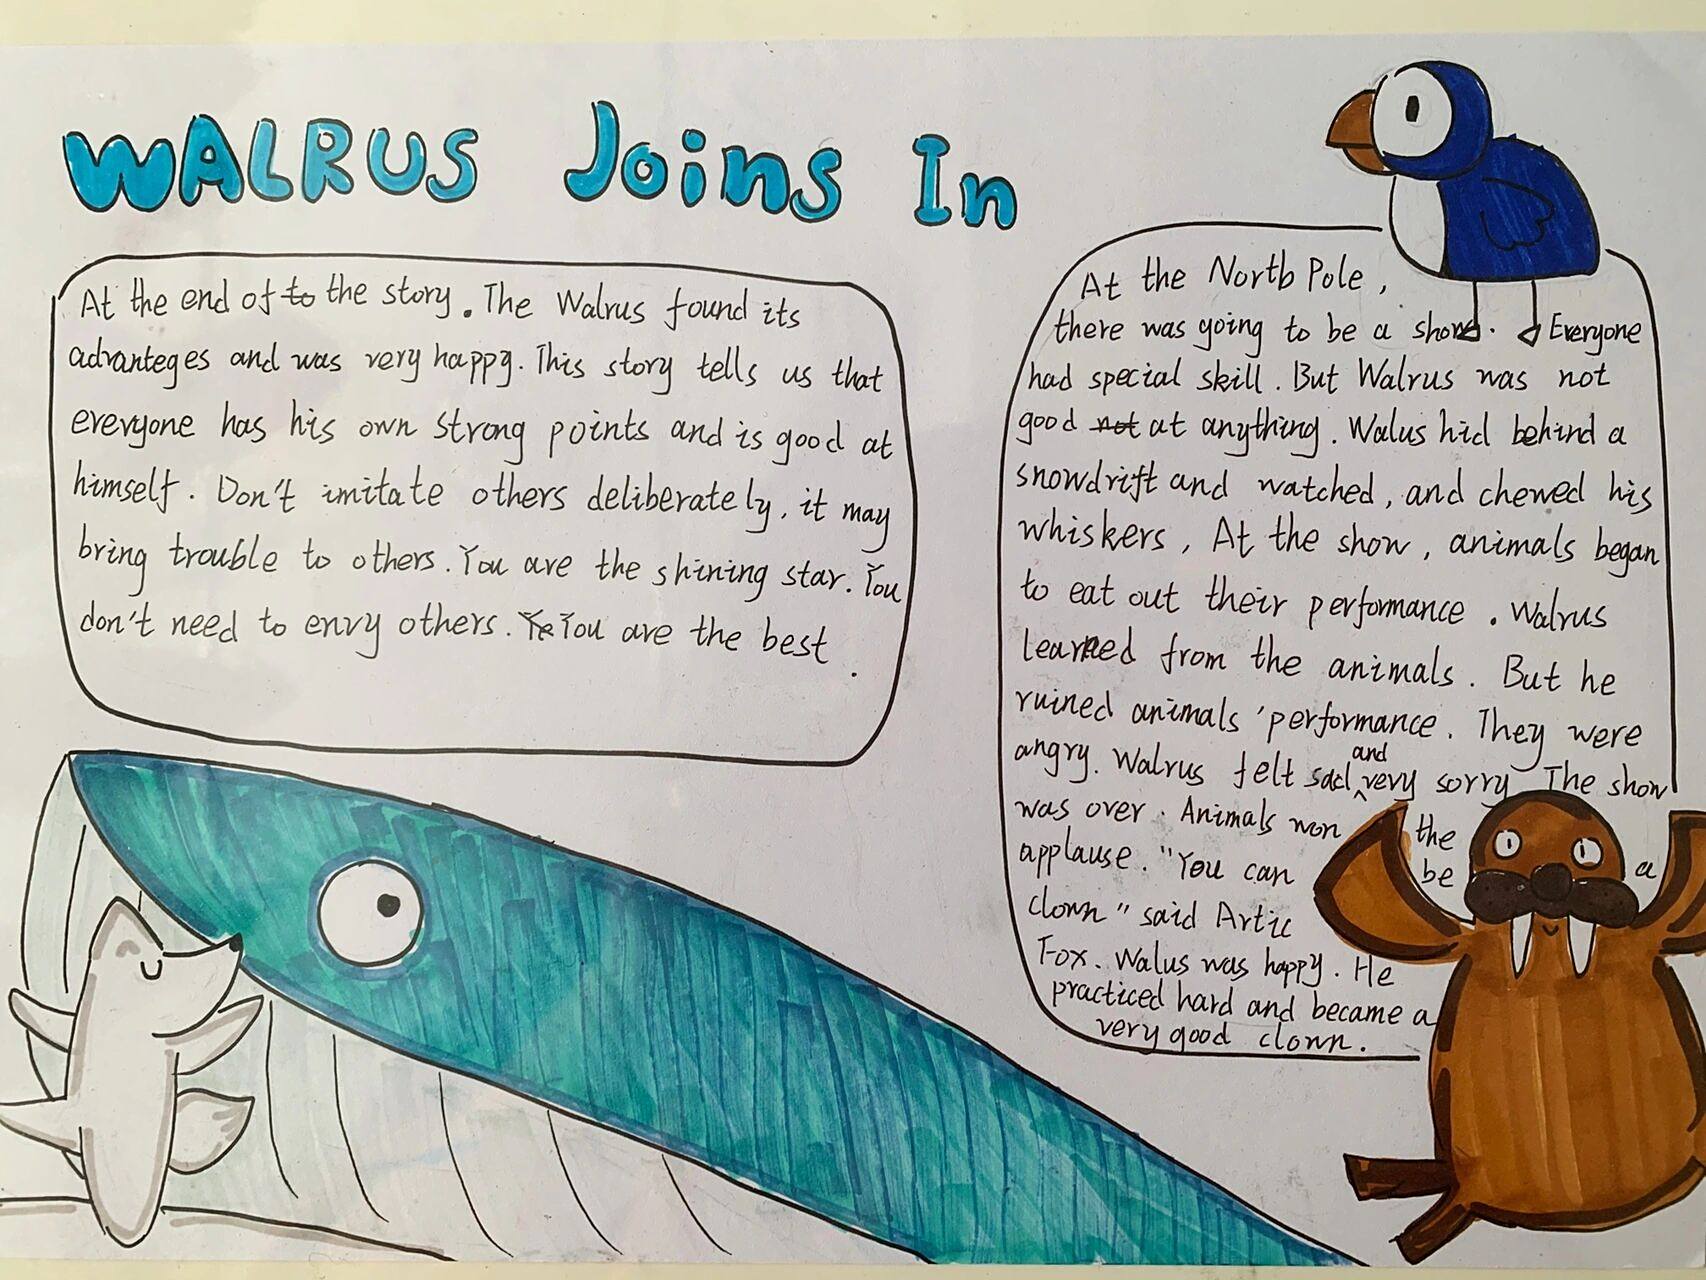 WALRUS Joins In
At the end of to the story. The Walrus found its
advanteges and was very happy. This story tells us that
everyone has his own strong points and is good at
himself. Don't imitate others deliberately, it may
bring trouble to others. You are the shining star. You
don't need to envy others. Ye You are the best
.
At the North Pole,
there was going to be a show. Everyone
had special skill. But Walrus was not
good not at anything. Walus hid behind a
snowdrift and watched, and chewed his
whiskers, At the show, animals began
to eat out their performance. Walrus
learned from the animals. But he
ruined animals' performance. They were
angry. Walrus felt sad and very sorry The show
was over. Animals won the
applause. "You can be a
clown" said Artic
Fox. Walus was happy. He
practiced hard and became a
very good clown.